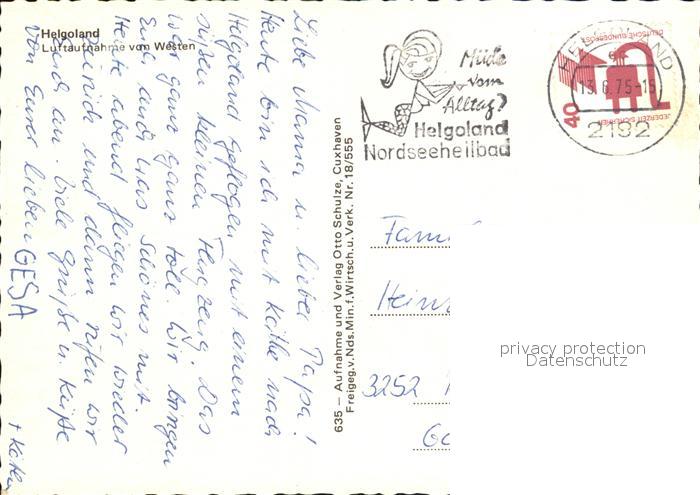 Helgoland
Luftaufnahme von Westen
Liebe Mama u. lieber Papa!
Heute bin ich mit Käthe nach
Helgoland geflogen mit einem
süßen kleinen Flugzeug. Das
war ganz ganz toll. Wir bringen
Euch auch was Schönes mit.
Heute abend fliegen wir wieder
zurück und dann rufen wir
Euch an. Viele Grüße u. Küße
von Eurer lieben GESA
+ Käthe
635 – Aufnahme und Verlag Otto Schulze, Cuxhaven
Freigeg. v. Nds. Min. f. Wirtsch. u. Verk. Nr. 18/555
Müde
vom
Alltag?
Helgoland
Nordseeheilbad
HELGOLAND
13.6.75-15
2192
DEUTSCHE BUNDESPOST
JEDERZEIT SICHERHEIT
40
Fami
Hein
3252
privacy protection
Datenschutz